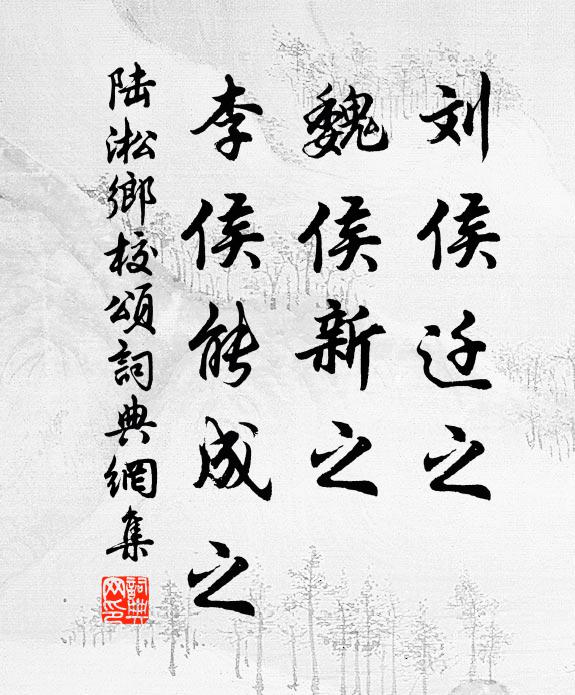 刘侯迁之
魏侯新之
李侯能成之
陆淞鄉校頌詞典網集
詞典
网